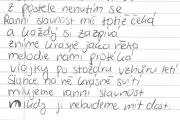 z postele nenutím se
Ranní slavnost mě totiž čeká
a každý si zazpívá
znime krásně jako řeka
melodie námi protéká
vlajky po stožáru vzhůru letí
slunce na ně krásně svítí
milujeme ranní slavnost
nikdy jí nebudeme mít dost.